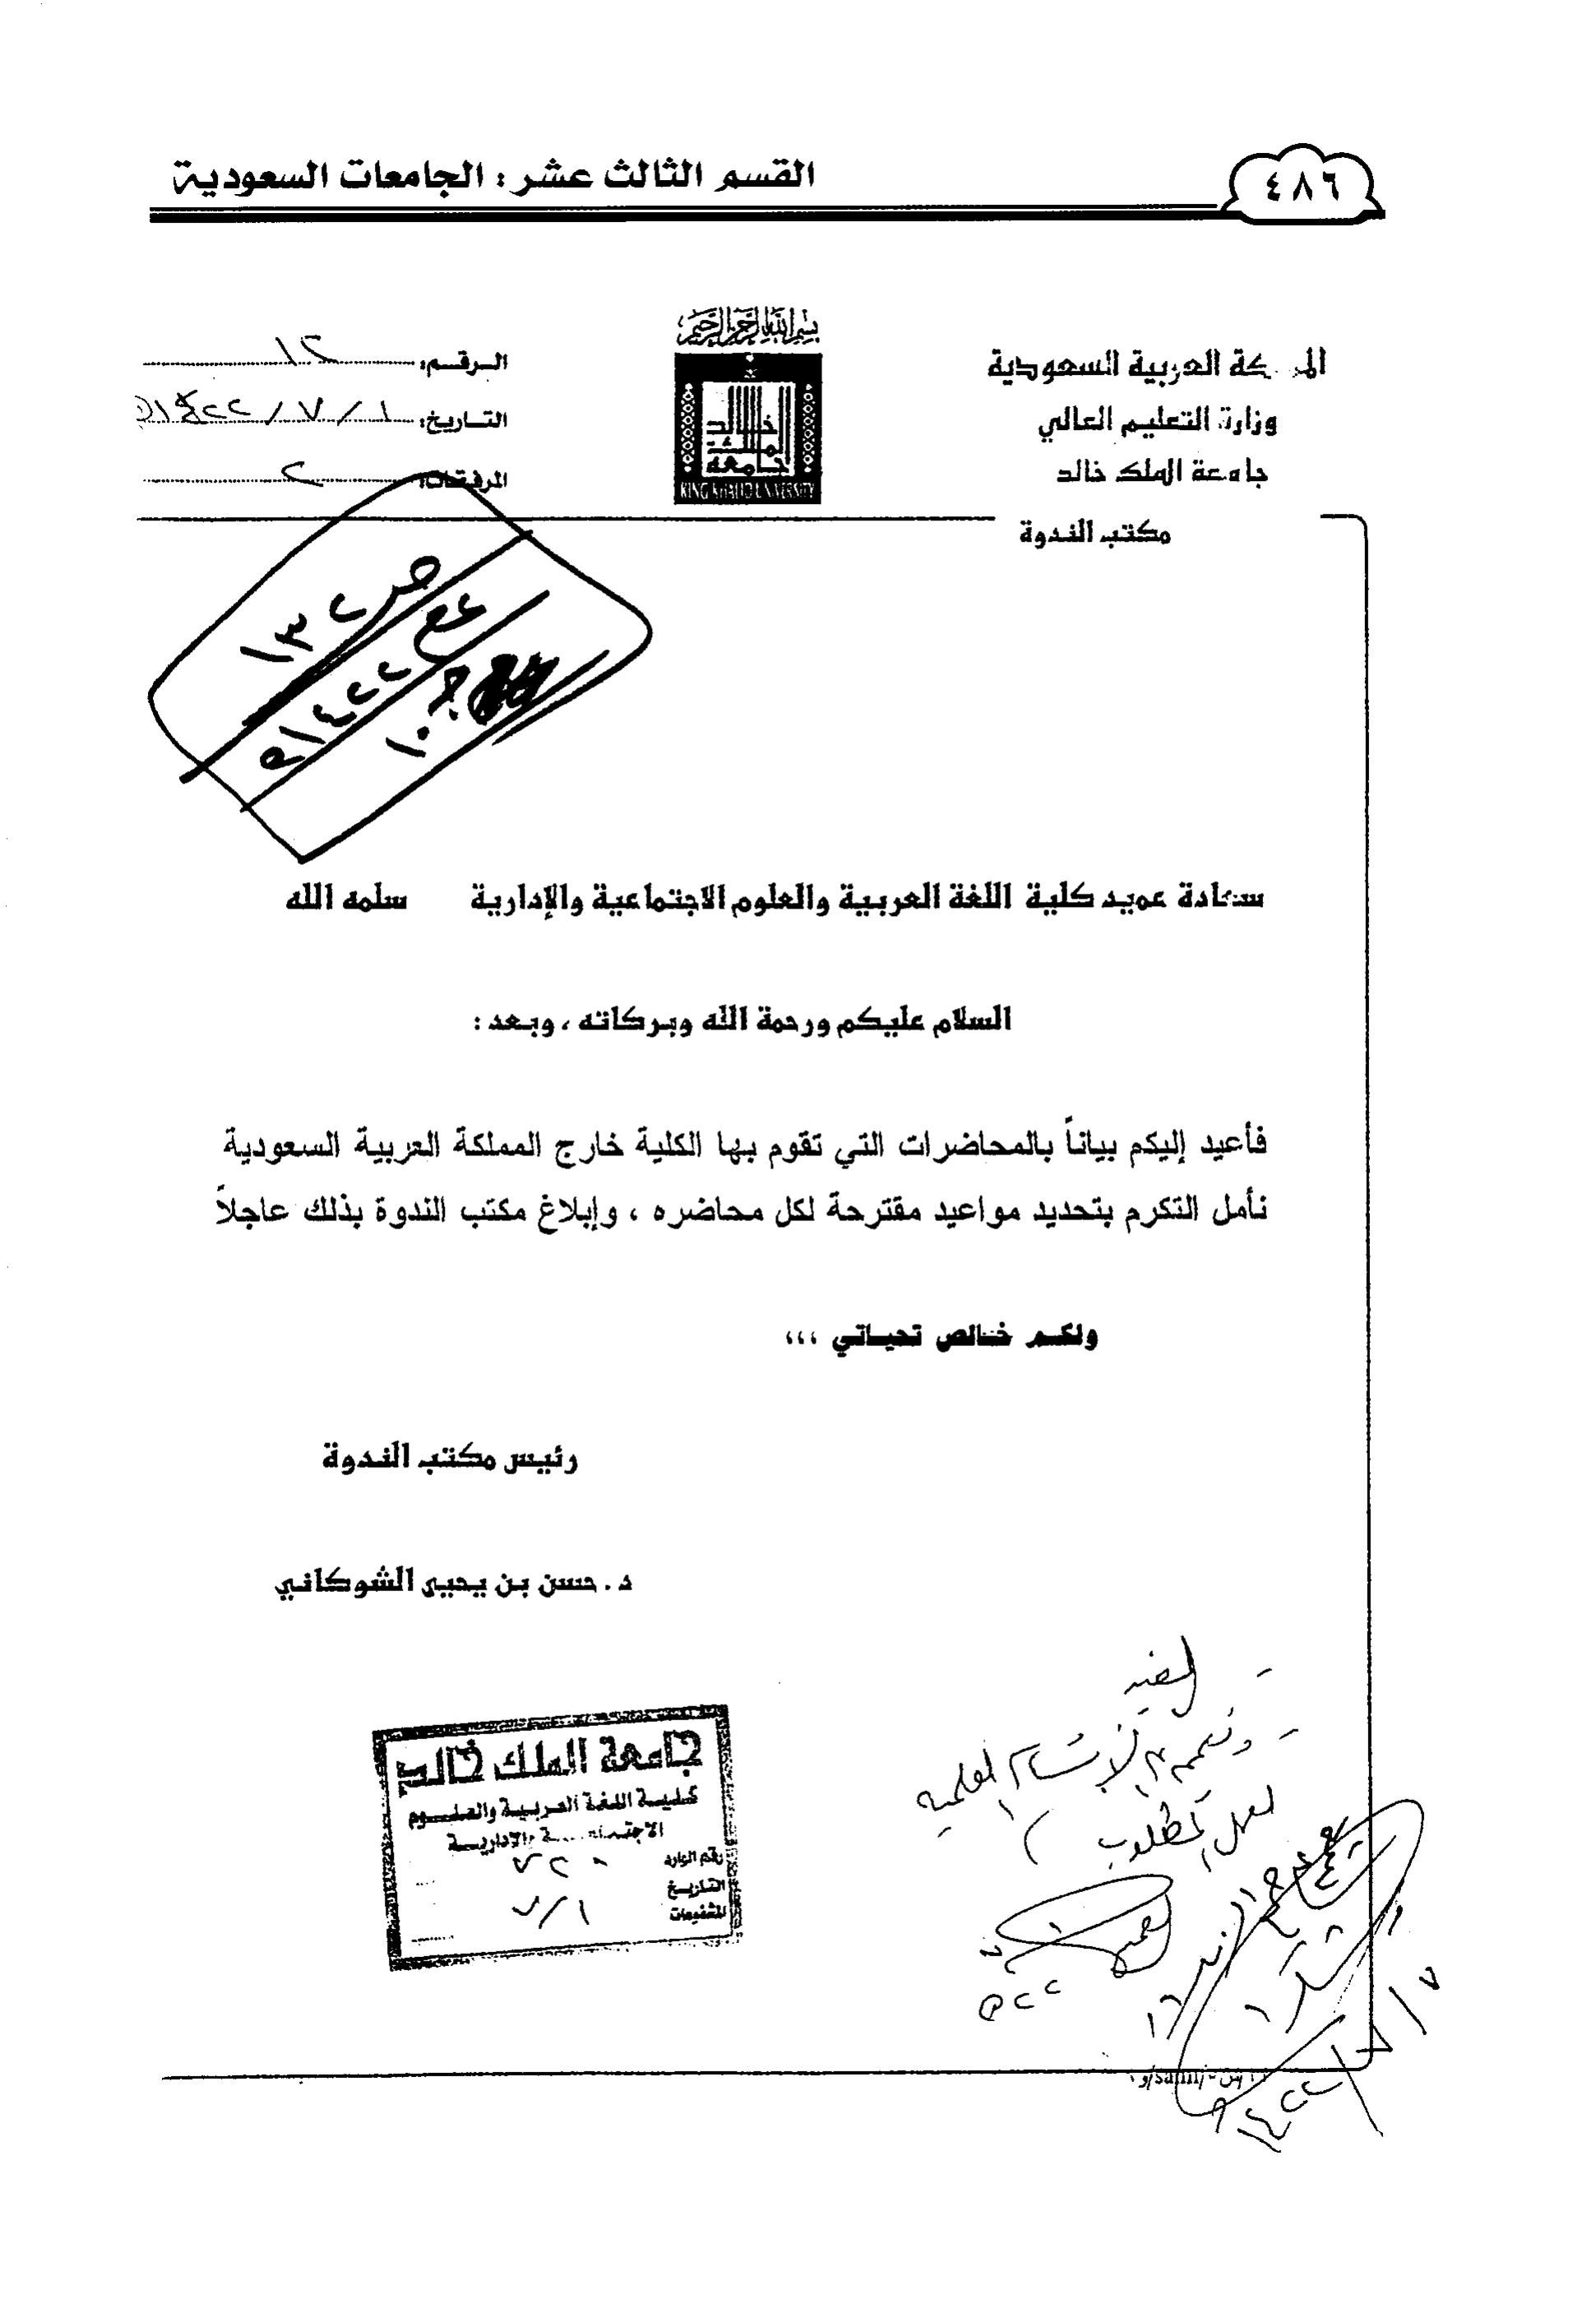 ٤٨٦
القسم الثالث عشر : الجامعات السعودية
بسم الله الرحمن الرحيم
المـ ـكة العربية السعودية
وزارة التعليم العالي
جامعة الملك خالد
مكتب الندوة
جامعة الملك خالد
KING KHALID UNIVERSITY
الرقم: ١٢
التاريخ: ١ / ٧ / ١٤٢٢هـ
المرفقات: ٢
ص ٢ ١٣
مع ١٤٢٢هـ
ج ١٠
سعادة عميد كلية اللغة العربية والعلوم الاجتماعية والإدارية سلمه الله
السلام عليكم ورحمة الله وبركاته ، وبعد :
فأعيد إليكم بياناً بالمحاضرات التي تقوم بها الكلية خارج المملكة العربية السعودية
نأمل التكرم بتحديد مواعيد مقترحة لكل محاضره ، وإبلاغ مكتب الندوة بذلك عاجلاً
ولكم خالص تحياتي ،،،
رئيس مكتب الندوة
د . حسن بن يحيى الشوكاني
جامعة الملك خالد
كلية اللغة العربية والعلوم
الاجتماعية والإدارية
رقم الوارد ٧٢٠
التاريخ ٧/١
المشفوعات
الأقسام العلمية
المطلوب
العميد
٢٢هـ
شكرا
٧ / ٧ / ١٤٢٢